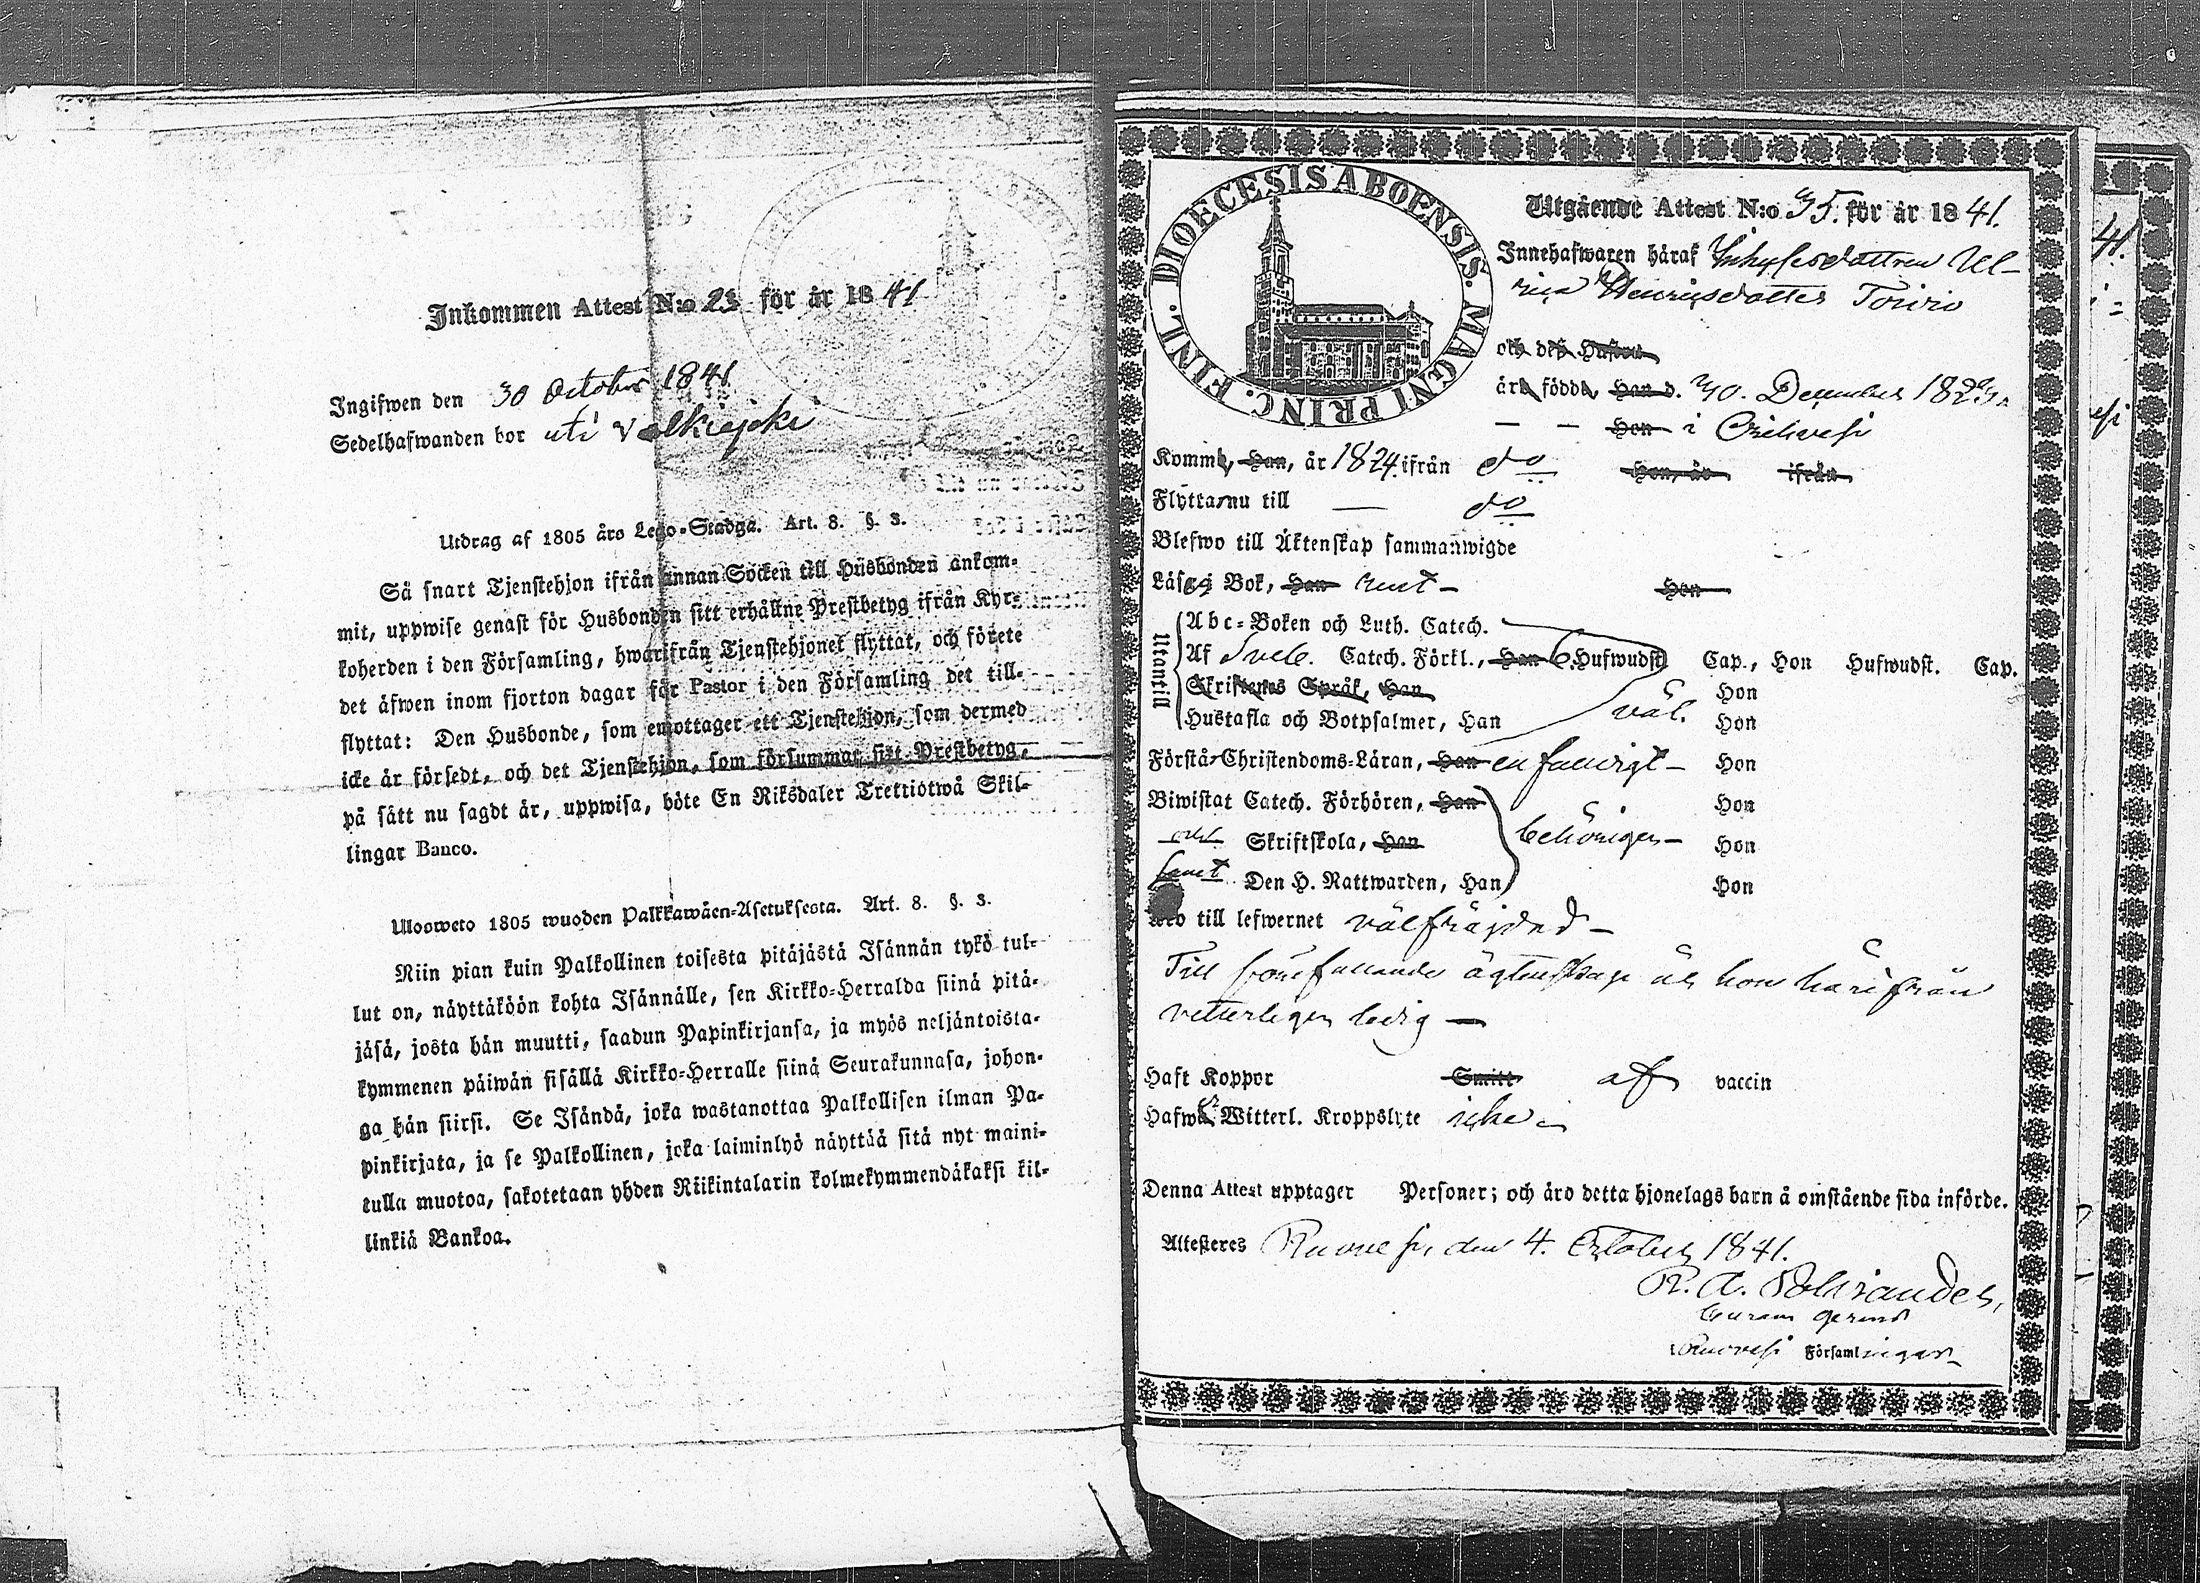 Inkommen Attest N:o 23 för år 1841
Ingifwen den 30 October 1841
Sedelhafwanden bor uti Valkiajcki
Utdrag af 1805 års Lego-Stadga. Art. 8. §. 3.
Så snart Tjenstehjon ifrån annan Socken till Husbonden ankom-
mit, uppwise genast för Husbonden sitt erhållne Prestbetyg ifrån Kyr-
koherden i den Församling, hwarifrån Tjenstehjonet flyttat, och förete
det äfwen inom fjorton dagar för Pastor i den Församling det till-
flyttat: Den Husbonde, som emottager ett Tjenstehjon, som dermed
icke är försedt, och det Tjenstehjon, som försummar sitt Prestbetyg,
på sätt nu sagdt är, uppwisa, böte En Riksdaler Trettiotwå Skil-
lingar Banco.
Ulosweto 1805 wuoden Palkkawäen-Asetuksesta. Art. 8. §. 3.
Niin pian kuin Palkollinen toisesta pitäjästä Isännän tykö tul-
lut on, näyttäköön kohta Isännälle, sen Kirkko-Herralda siinä pitä-
jäsä, josta hän muutti, saadun Papinkirjansa, ja myös neljäntoista-
kymmenen päiwän sisällä Kirkko-Herralle siinä Seurakunnasa, johon-
ga hän siirsi. Se Isändä, joka wastanottaa Palkollisen ilman Pa-
pinkirjata, ja se Palkollinen, joka laiminlyö näyttää sitä nyt maini-
tulla muotoa, sakotetaan yhden Riikintalarin kolmekymmendäkaksi kil-
linkiä Bankoa.
DIOECESIS ABOENSIS. MAGNI PRINC. FINL.
Utgående Attest N:o 35. för år 1841.
Innehafwaren häraf Inhysesdottren Ul-
rica Henricsdotter Toivio
och deß Hustru
är födde, Han d. 30. December 1823.
— — Hon i Orihvesi
Komm, Han, år 1824 ifrån do Hon, år ifrån
Flytta nu till — do
Blefwo till Äktenskap sammanwigde
Läser i Bok, Han rent — Hon
Utantill
Abc-Boken och Luth. Catech.
Af Sveb. Catech. Förkl., Han 6. Hufwudst. Cap., Hon Hufwudst. Cap.
Skriftenes Språk, Han Hon
Hustafla och Botpsalmer, Han väl. Hon
Förstå Christendoms-Läran, Han enfaldigt — Hon
Biwistat Catech. Förhören, Han Hon
och Skriftskola, Han behörigen — Hon
samt Den H. Nattwarden, Han Hon
Äro till lefwernet välfräjdad —
Till förefallande ägtenskap är hon härifrån
vetterligen ledig —
Haft Koppor Smitt af vaccin
Hafwa Witterl. Kroppslyte icke
Denna Attest upptager Personer; och äro detta hjonelags barn å omstående sida införde.
Attesteres Ruovesi, den 4. October 1841.
curam gerens
Ruovesi Församlingar
41.